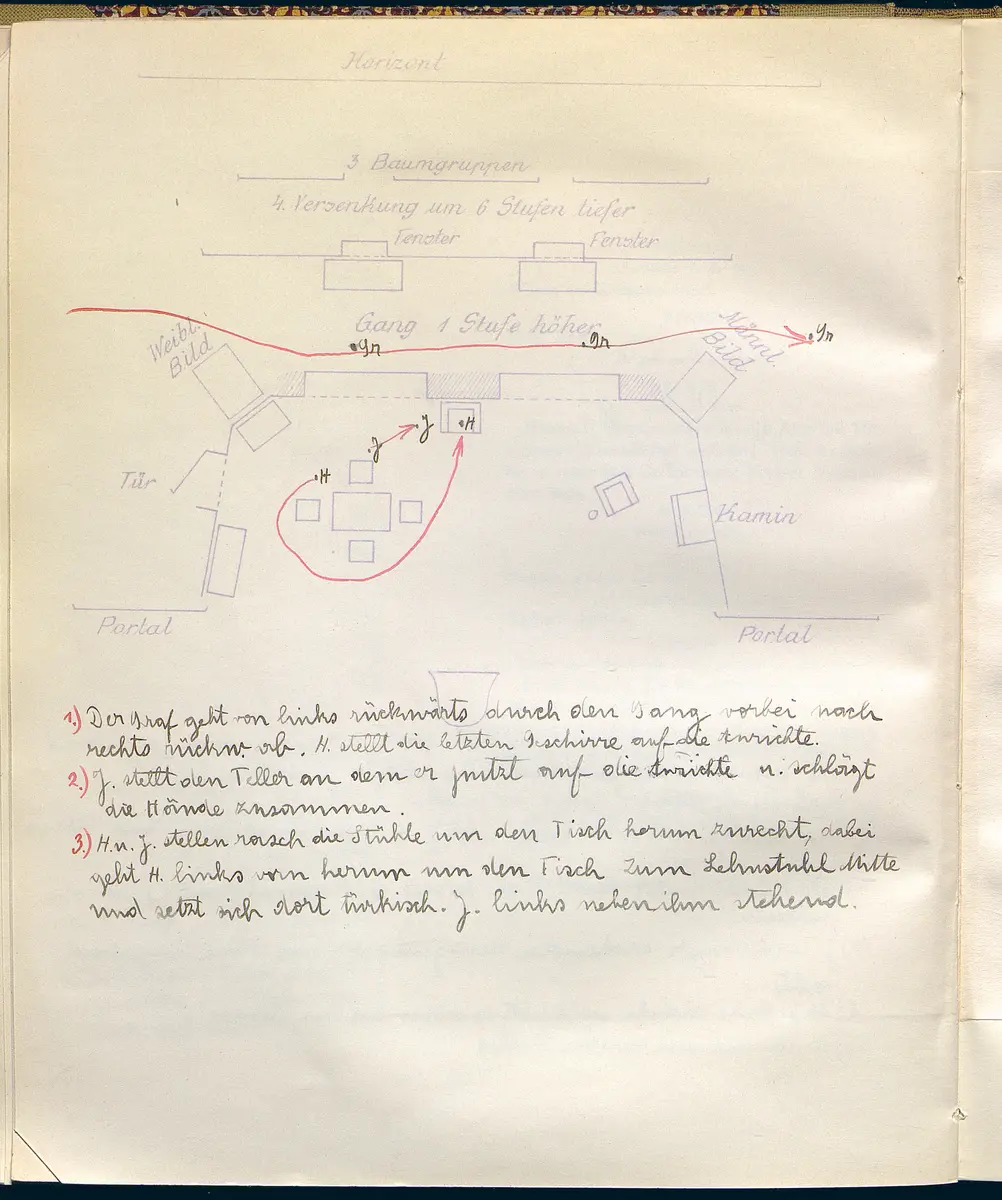 Horizont
3 Baumgruppen
4. Versenkung um 6 Stufen tiefer
Fenster
Fenster
Gang 1 Stufe höher
Weibl.
Bild
Männl.
Bild
Gr
Gr
Gr
J
J
H
H
Tür
Kamin
Portal
Portal
1.) Der Graf geht von links rückwärts durch den Gang vorbei nach
rechts rückw. ab. H. stellt die letzten Geschirre auf die Anrichte.
2.) J. stellt den Teller an dem er putzt auf die Anrichte u. schlägt
die Hände zusammen.
3.) H. u. J. stellen rasch die Stühle um den Tisch herum zurecht, dabei
geht H. links vorn herum um den Tisch zum Lehnstuhl Mitte
und setzt sich dort türkisch. J. links neben ihm stehend.